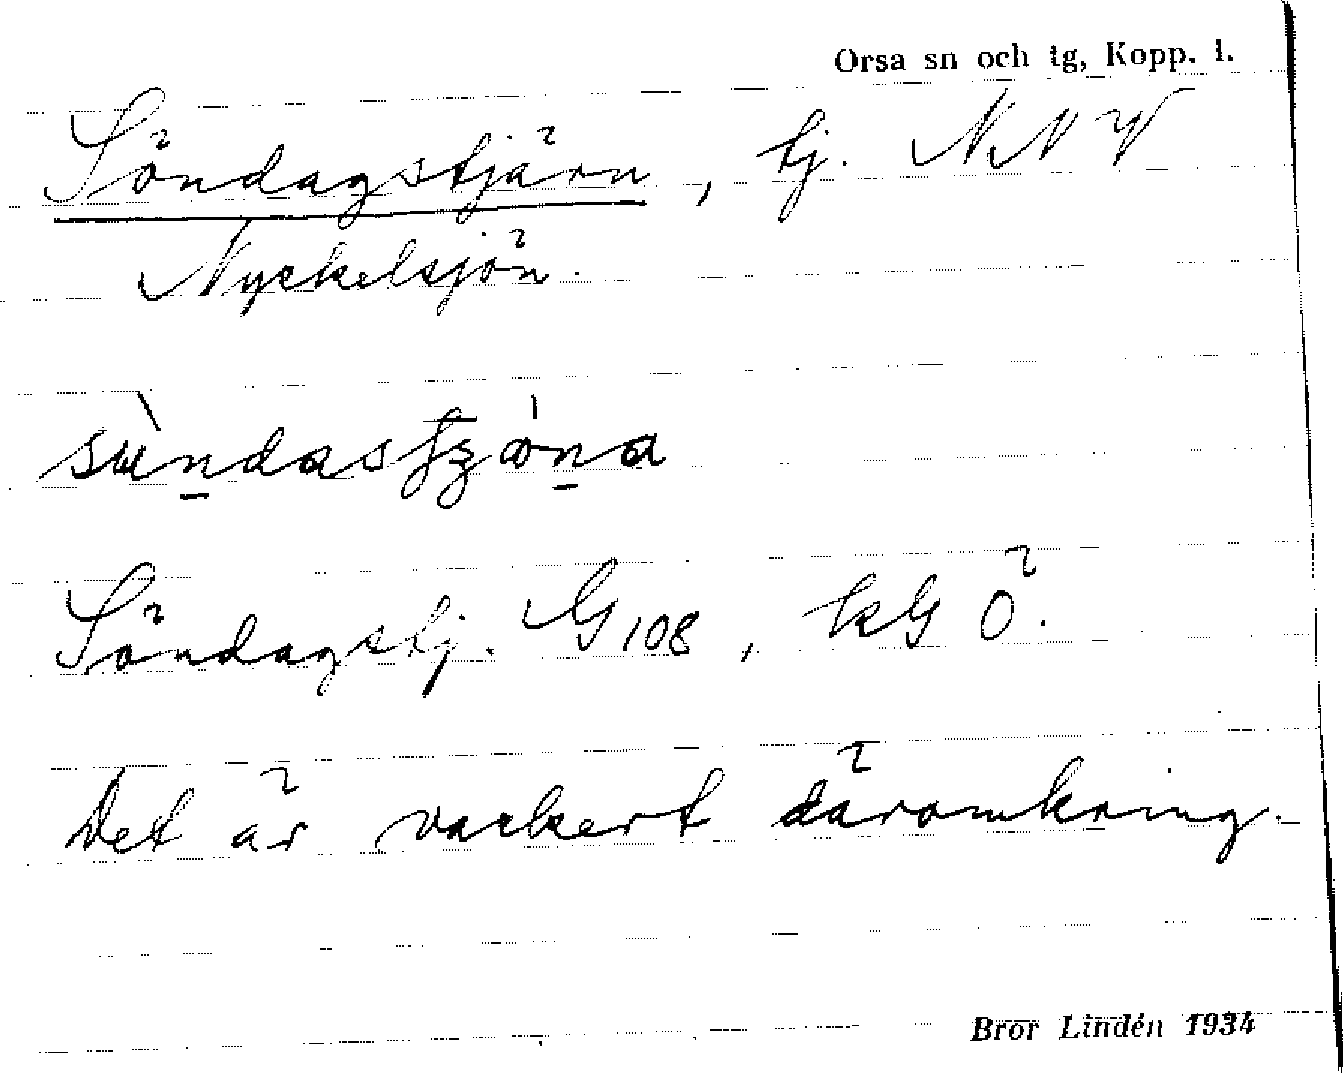 Orsa sn och tg, Kopp. l.
Söndagstjärn, tj. NNV
Nyckelsjön.
Söndagstj. G108, kG Ö.
Det är vackert däromkring.
Bror Lindén 1934